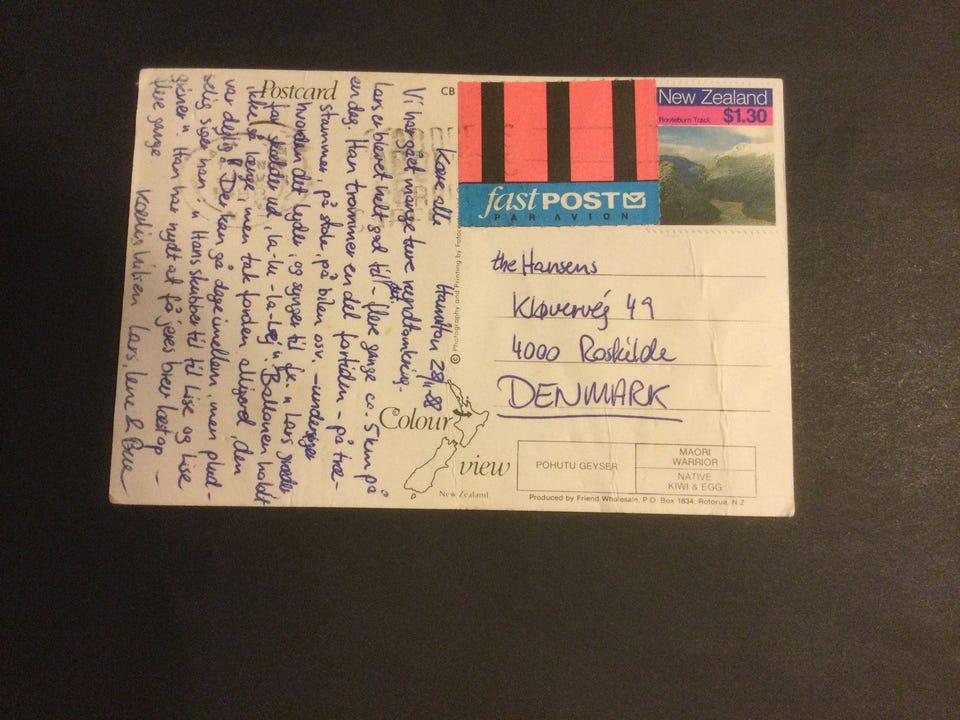 Postcard
CB
Kære alle Hamilton 28/11-88
Vi har gået mange ture rundtomkring.
Lars er blevet helt god til det - flere gange ca. 5 km på
en dag. Han trommer en del fortiden - på træ-
stammer, på stole, på bilen osv. - undersøger
hvordan det lyder, og synger til
far skælder ud, la-la-la-løj". Ballonen holdt
ikke så længe, men tak for den alligevel, den
var dejlig. Der kan gå dage imellem, men plud-
selig siger han: " Hans skubber til til Lise og Lise
griner". Han har nydt at få jeres brev læst op -
flere gange
Kærlig hilsen Lars, Lene &
© Photography and Printing by
Colour
view
New Zealand
fast POST
PAR AVION
New Zealand
Routeburn Track $1.30
the Hansens
Kløvervej 49
4000 Roskilde
DENMARK
POHUTU GEYSER
MAORI
WARRIOR
NATIVE
KIWI & EGG
Produced by Friend Wholesale, P.O. Box 1834, Rotorua, N.Z